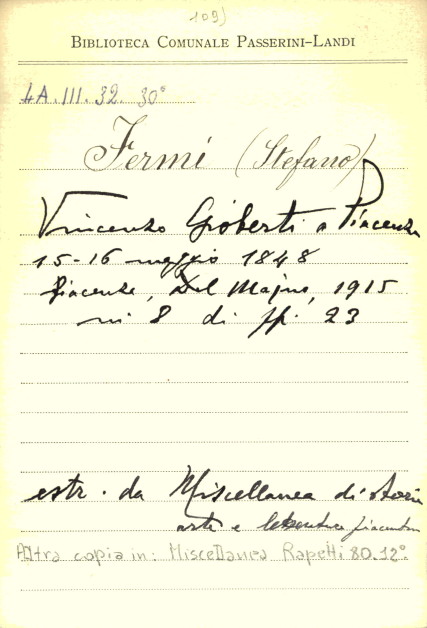 109)
BIBLIOTECA COMUNALE PASSERINI-LANDI
4A.III.32.30°
Fermi (Stefano)
Vincenzo Gioberti a Piacenza
15-16 maggio 1848
Piacenza, Del Maino, 1915
in 8 di pp. 23
estr. da Miscellanea di storia
arte e letteratura piacentina
Altra copia in: Miscellanea Rapetti 80.12°.